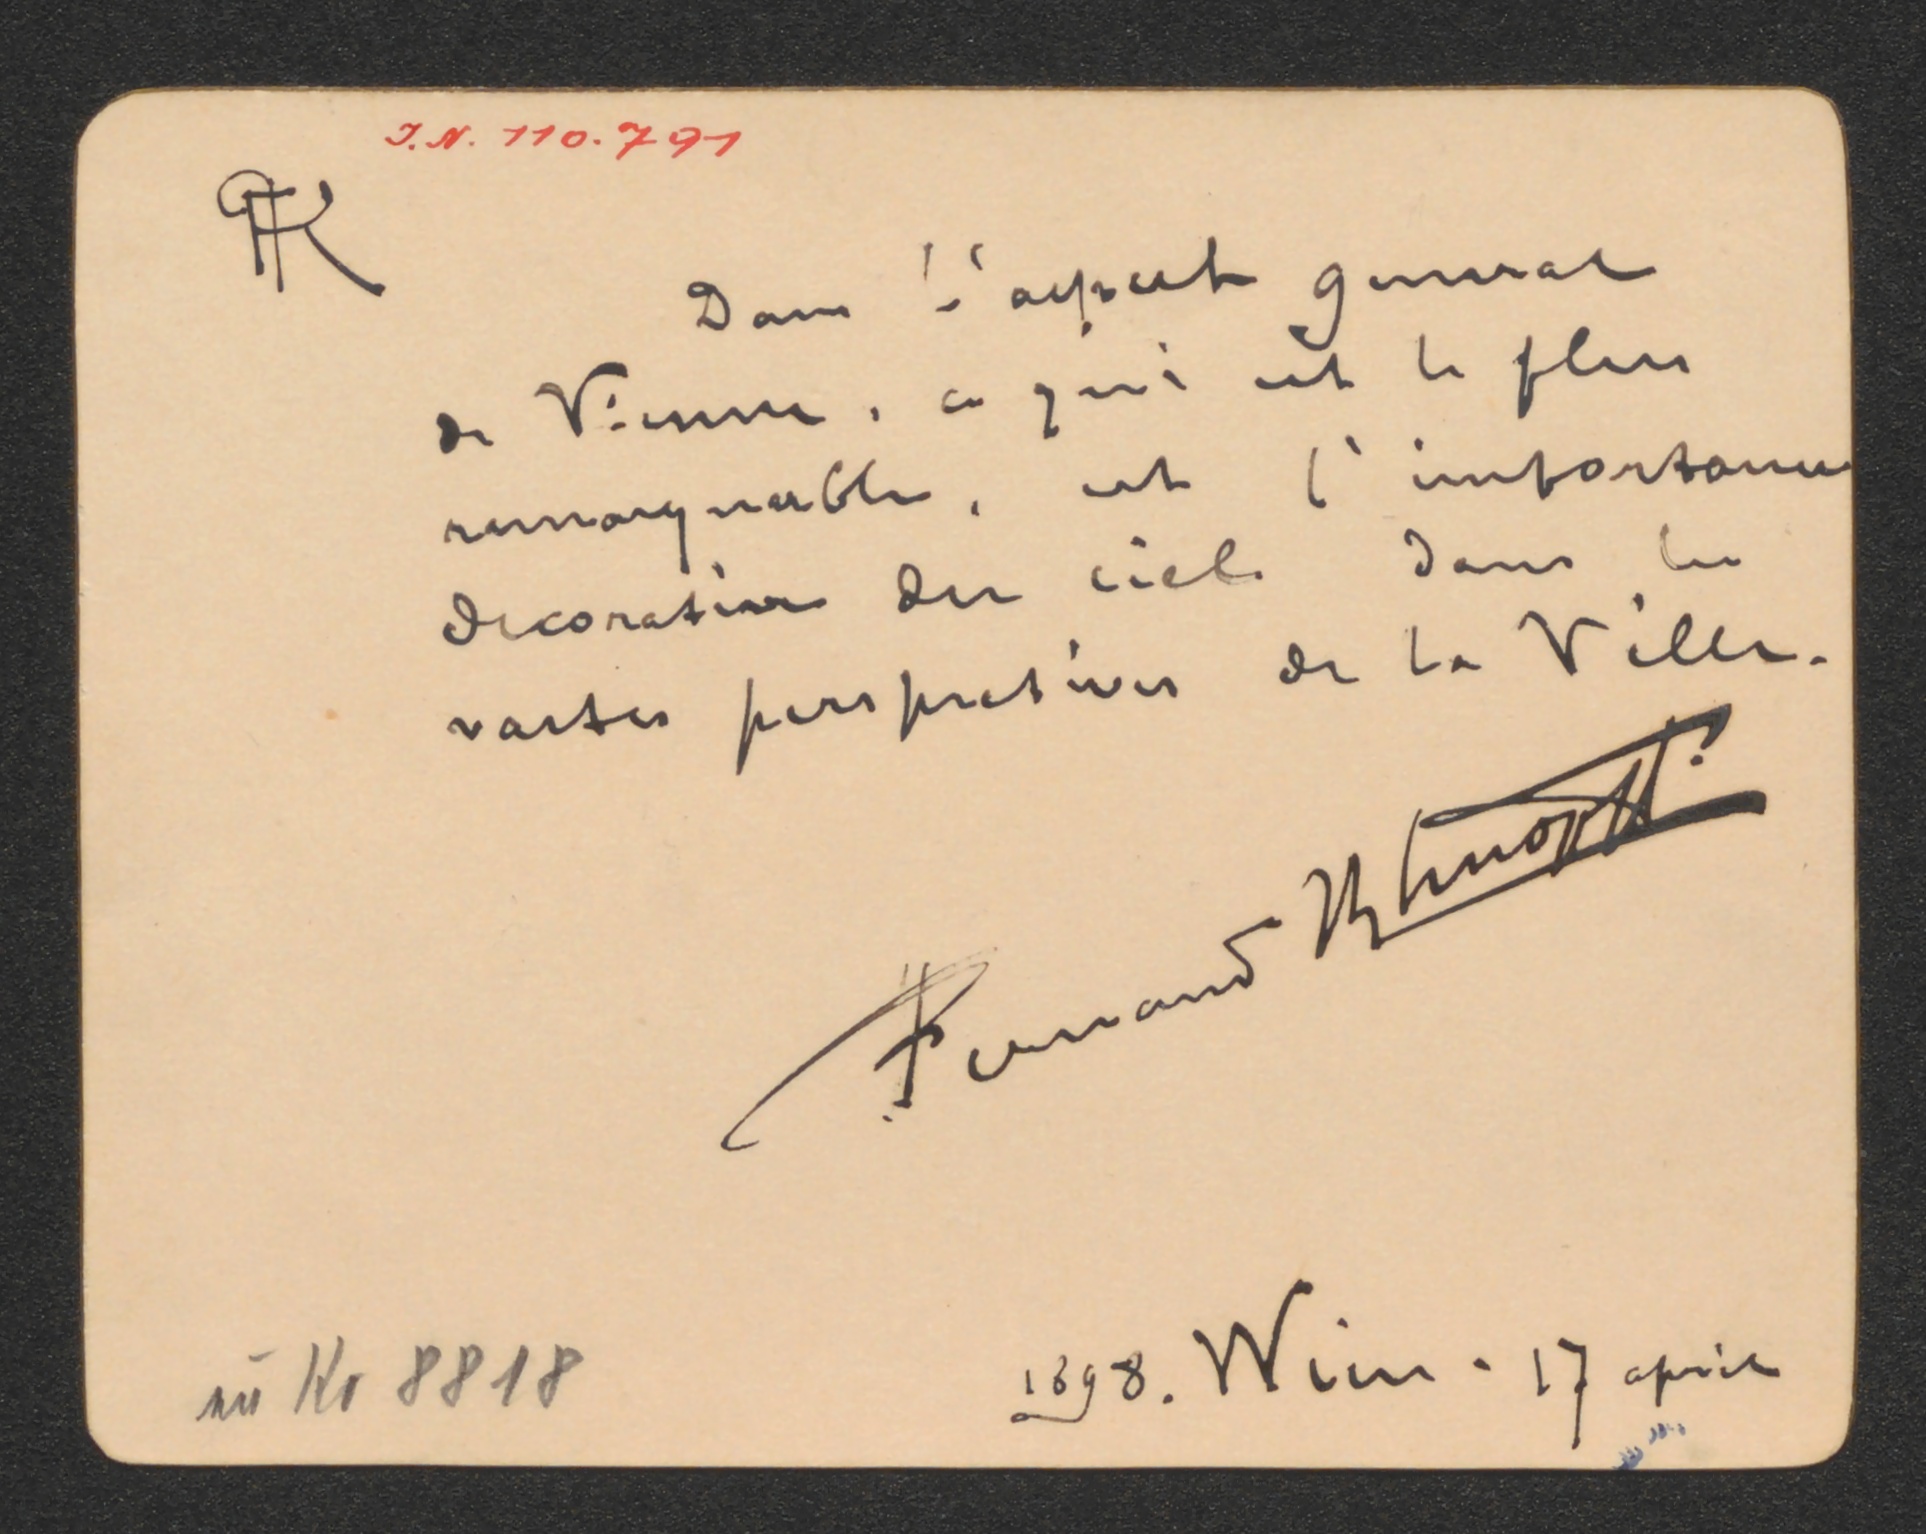 J.N. 110.791
FK
Dans l'aspect general
de Vienne, ce qui est le plus
remarquable, est l'importance
decorative du ciel dans les
vastes perspectives de la Ville.
Fernand Khnopff.
1898. Wien - 17 april
8818